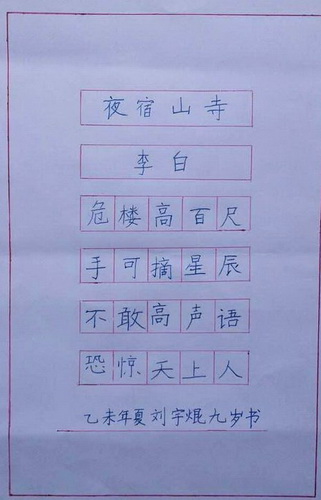 夜宿山寺
李白
危楼高百尺
手可摘星辰
不敢高声语
恐惊天上人
乙未年夏刘宇焜九岁书